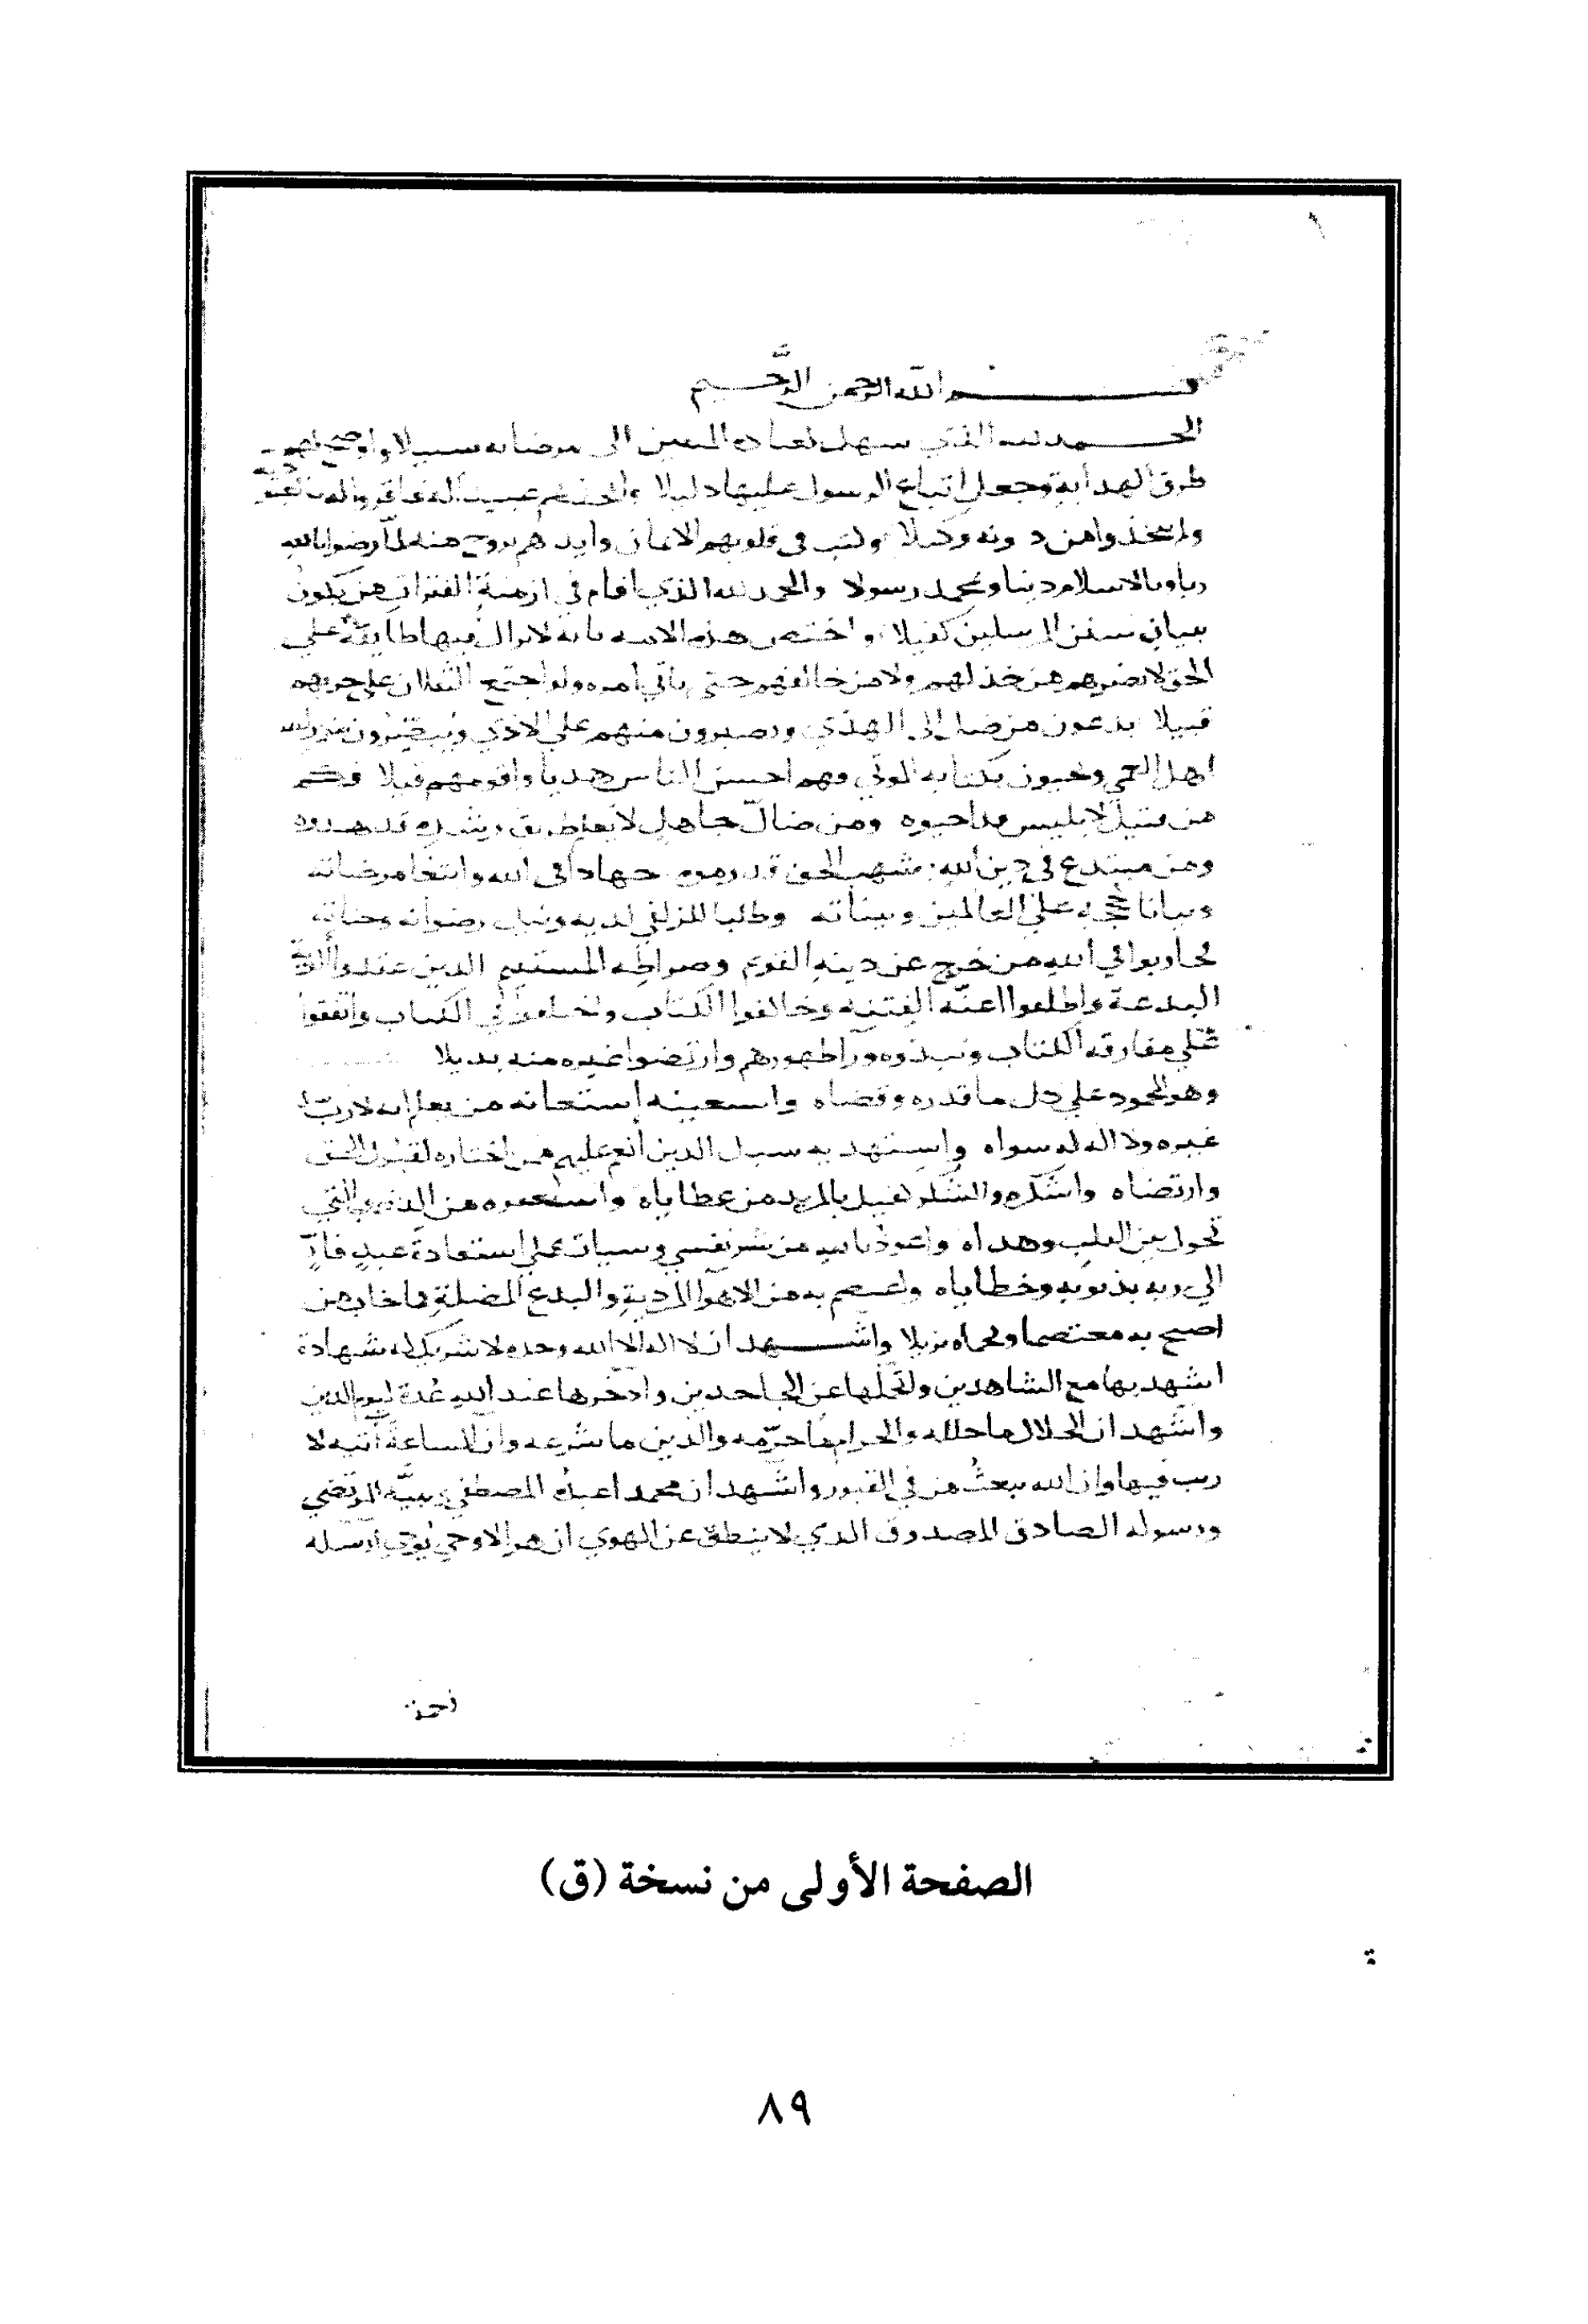 بسم الله الرحمن الرحيم
الحمد لله الذي سهل لعباده المتقين الى مرضاته سبيلا واوضح لهم
طرق الهداية وجعل اتباع الرسول عليها دليلا واتخذهم عبيدا له فاقروا له بالعبودية
ولم يتخذوا من دونه وكيلا وكتب في قلوبهم الايمان وايدهم بروح منه لما رضوا بالله
ربا وبالاسلام دينا وبمحمد رسولا والحمد لله الذي اقام في ازمنة الفترات من يكون
ببيان سنن المرسلين كفيلا واختص هذه الامه بانه لا يزال فيها طايفة علي
الحق لا يضرهم من خذلهم ولا من خالفهم حتى ياتي امره ولو اجتمع الثقلان علي حربهم
قبيلا يدعون من ضل الى الهدي ويصبرون منهم علي الاذي ويبصرون بنور الله
اهل العمي ويحيون بكتابه الموتي وهم احسن الناس هديا واقومهم قيلا فكم
من قتيل لابليس قد احيوه ومن ضال جاهل لا يعلم طريق رشده قد هدوه
ومن مبتدع في دين الله بشهب الحق قد رموه جهادا في الله وابتغا مرضاته
وبيانا لحججه علي العالمين وبيناته وطلبا للزلفي لديه ونيل رضوانه وجناته
فحاربوا في الله من خرج عن دينه القويم وصراطه المستقيم الذين عقدوا الوية
البدعة واطلقوا اعنه الفتنه وخالفوا الكتاب واختلفوا في الكتاب واتفقوا
علي مفارقه الكتاب ونبذوه ورا ظهورهم وارتضوا غيره منه بديلا
وهو المحمود علي كل ما قدره وقضاه واستعينه استعانه من يعلم انه لا رب له
غيره ولا اله له سواه واستهديه سبيل الذين انعم عليهم ممن اختاره لقبول الحق
وارتضاه واشكره والشكر كفيل بالمزيد من عطاياه واستغفره من الذنوب التي
تحول بين القلب وهداه واعوذ بالله من شر نفسي وسيات عملي استعاذة عبد فار
الي ربه بذنوبه وخطاياه واعتصم به من الاهوا المردية والبدع المضلة فما خاب من
اصبح به معتصما وبحماه نزيلا واشهد ان لا اله الا الله وحده لا شريك له شهادة
اشهد بها مع الشاهدين واتحملها عن الجاحدين وادخرها عند الله عدة ليوم الدين
واشهد ان الحلال ما حلله والحرام ما حرمه والدين ما شرعه وان الساعة اتيه لا
ريب فيها وان الله يبعث من في القبور واشهد ان محمدا عبده المصطفي ونبيه المرتضي
ورسوله الصادق المصدوق الذي لا ينطق عن الهوي ان هو الا وحي يوحي ارسله
الصفحة الأولى من نسخة (ق)
٨٩